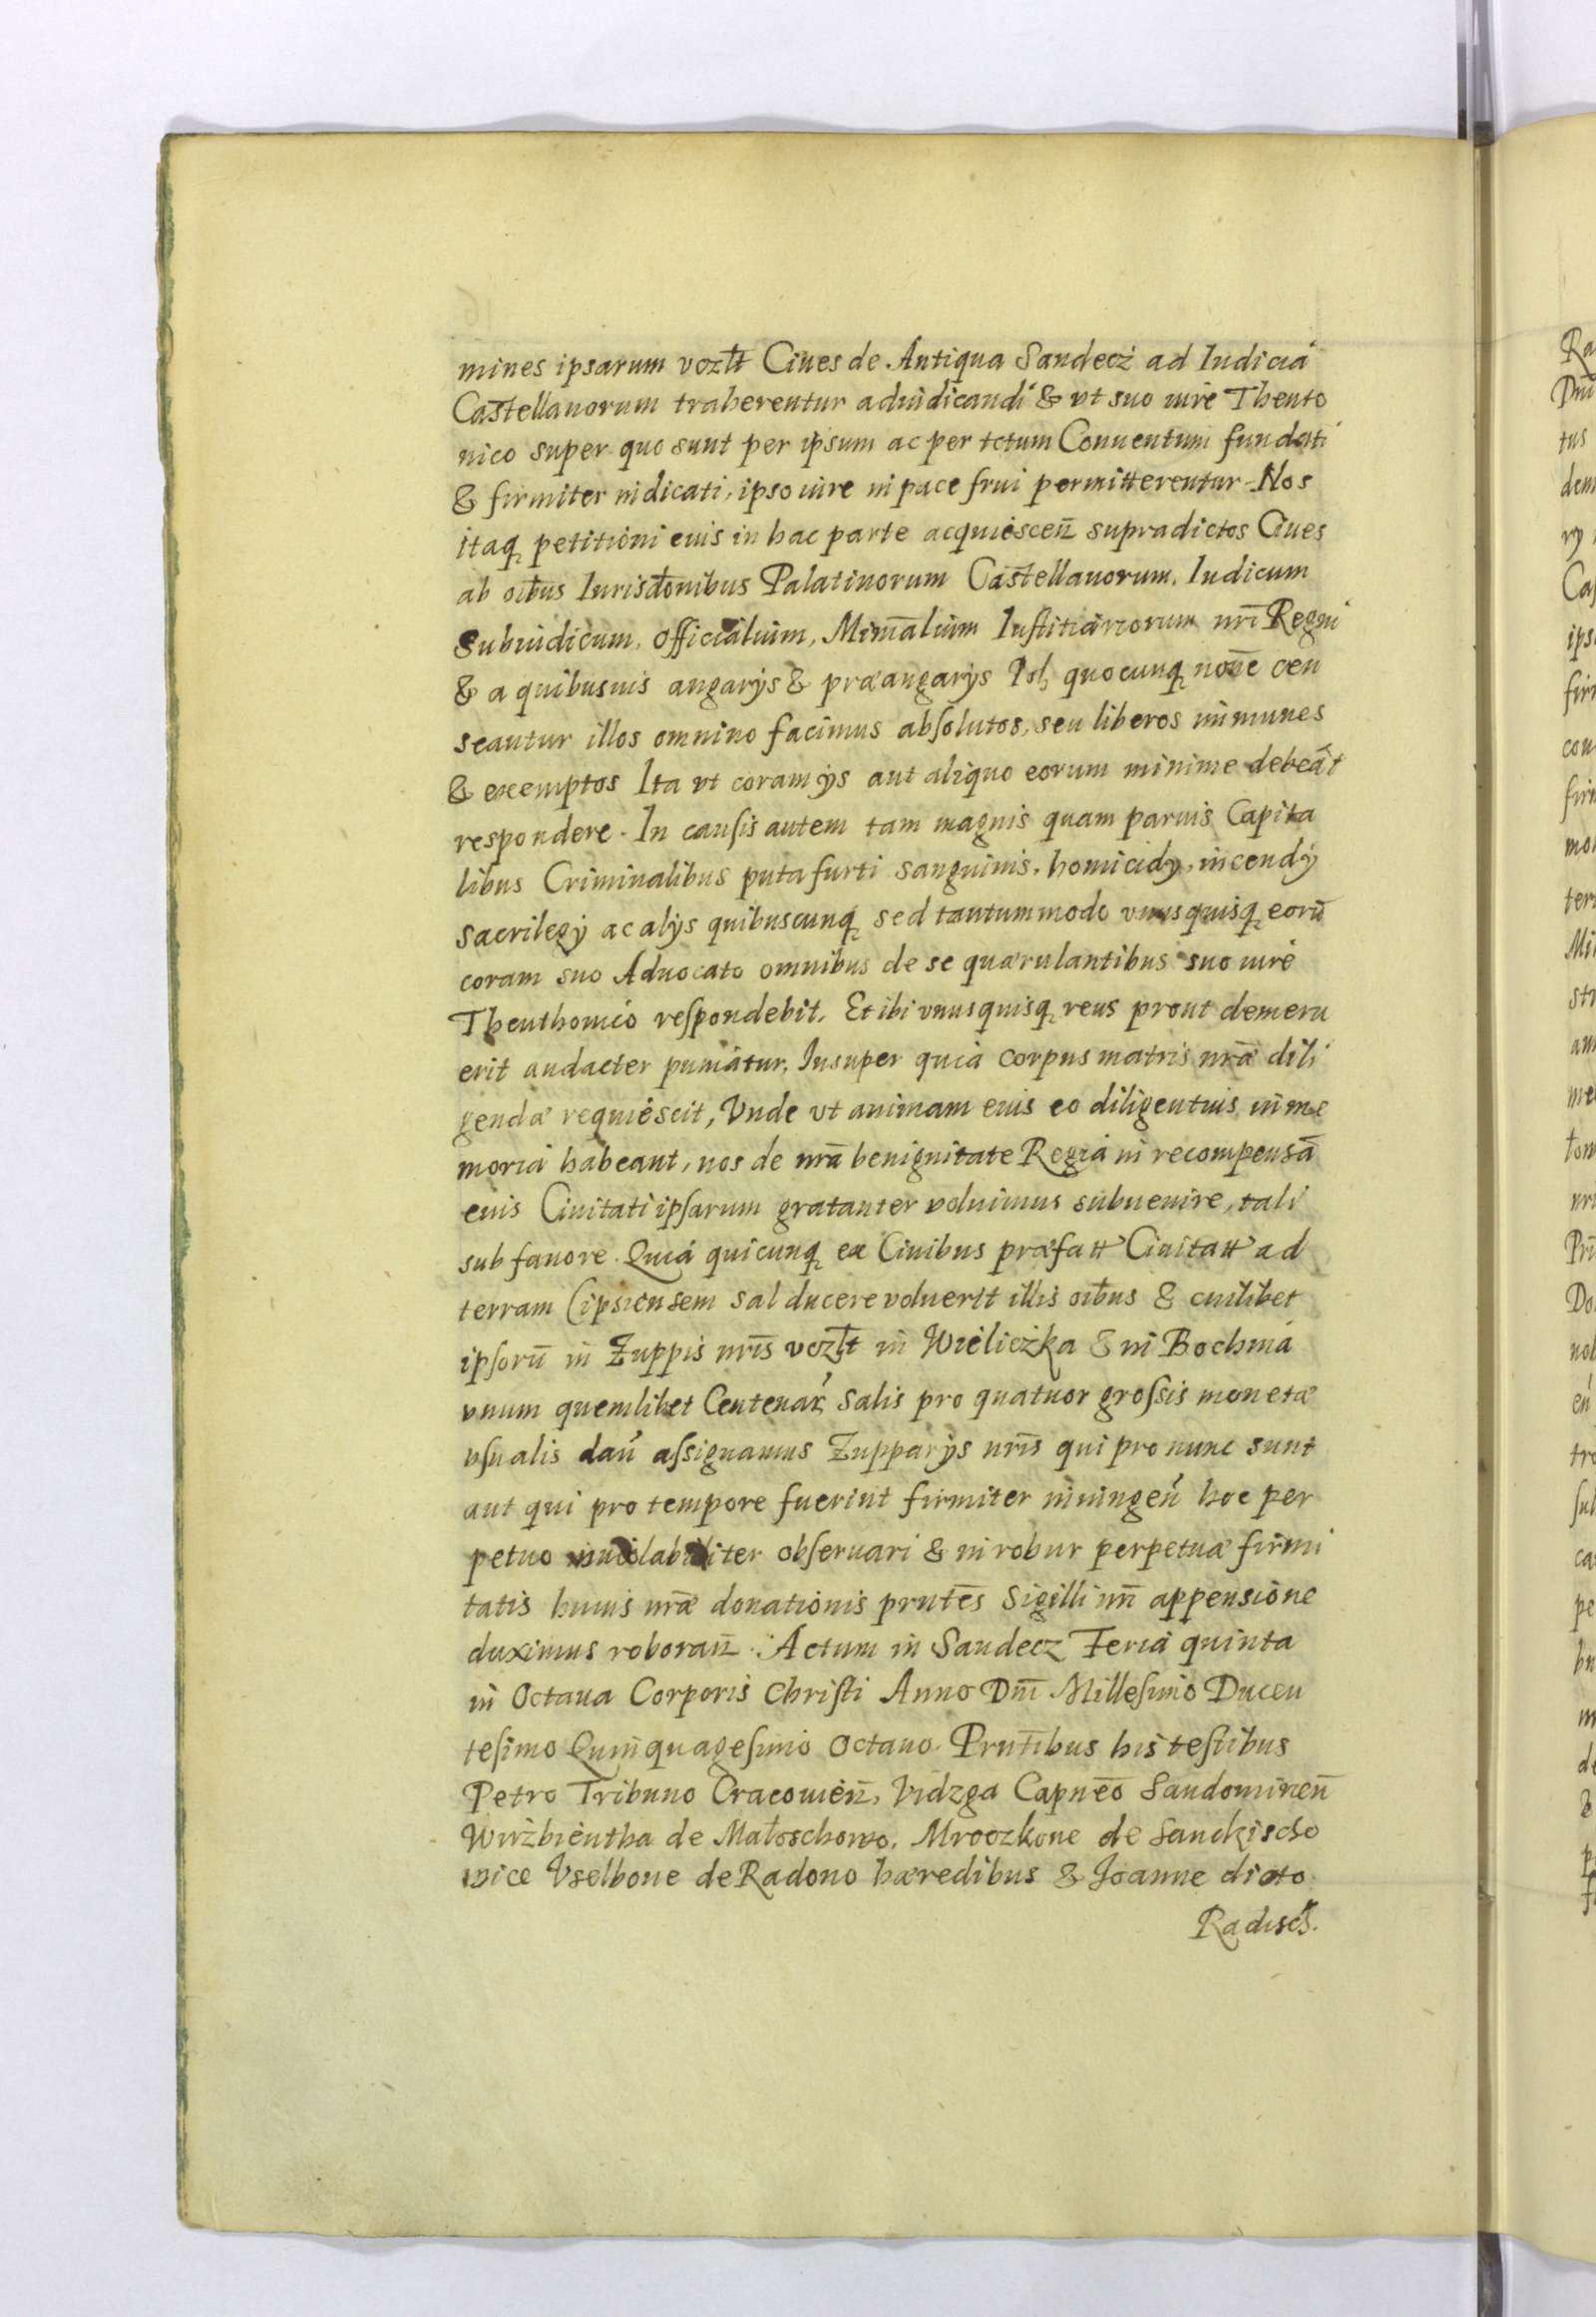 mines ipsarum vozłt Ciues de Antiqua Sandecz ad Iudicia
Castellanorum traherentur adiudicandi & vt suo iure Theuto
nico super quo sunt per ipsum ac per totum Conuentum fundati
& firmiter indicati, ipso iure in pace frui permitterentur. Nos
itaq petitioni euis in hac parte acquiesceñ supradictos Ciues
ab oībus Iurisdtonibus Palatinorum Castellanorum, Iudicum
Subiudicum, Officialium, Minrālium Iustitiariorum nrī Regni
& a quibusuis angarijs & præangarijs quocunq noīe cen
seantur illos omnino facimus absolutos, seu liberos immunes
& exemptos Ita vt coram ijs aut aliquo eorum minime debeāt
respondere. In causis autem tam magnis quam paruis Capita
libus Criminalibus puta furti sanguinis, homicidij, incendij
sacrilegij ac alijs quibuscunq sed tantummodo vnusquisq eorū
coram suo Aduocato omnibus de se quærulantibus suo iure
Theuthonico respondebit. Et ibi vnusquisq reus prout demeru
erit audacter puniatur. Insuper quia corpus matris nræ dili
gendæ requiescit, Vnde vt animam euis eo diligentius in me
moria habeant, nos de nrā benignitate Regia in recompensā
euis Ciuitati ipsarum gratanter voluimus subuenire, tali
sub fauore. Quia quicunq ex Ciuibus præfatt Ciuitatt ad
terram Cipsiensem sal ducere voluerit illis oībus & cuilibet
ipsorū in Zuppis nrīs vozłt in Wieliczka & in Bochnia
vnum quemlibet Centenar salis pro quatuor grossis monetæ
vsualis dañ assignamus Zupparijs nrīs qui pro nunc sunt
aut qui pro tempore fuerint firmiter iniungeñ hoc per
petuo inuiolabiliter obseruari & in robur perpetuæ firmi
tatis huius nræ donationis prntēs Sigilli nrī appensione
duximus roborañ. Actum in Sandecz Feria quinta
in Octaua Corporis Christi Anno Dnī Millesimo Ducen
tesimo Quinquagesimo Octauo. Prntībus his testibus
Petro Tribuno Cracouieñ, Vidzga Capneō Sandomirieñ
Wirżbientha de Małoschowo, Mroczkone de Sanckischo
wice Vselbone de Radono hæredibus & Joanne dicto
Radisch.